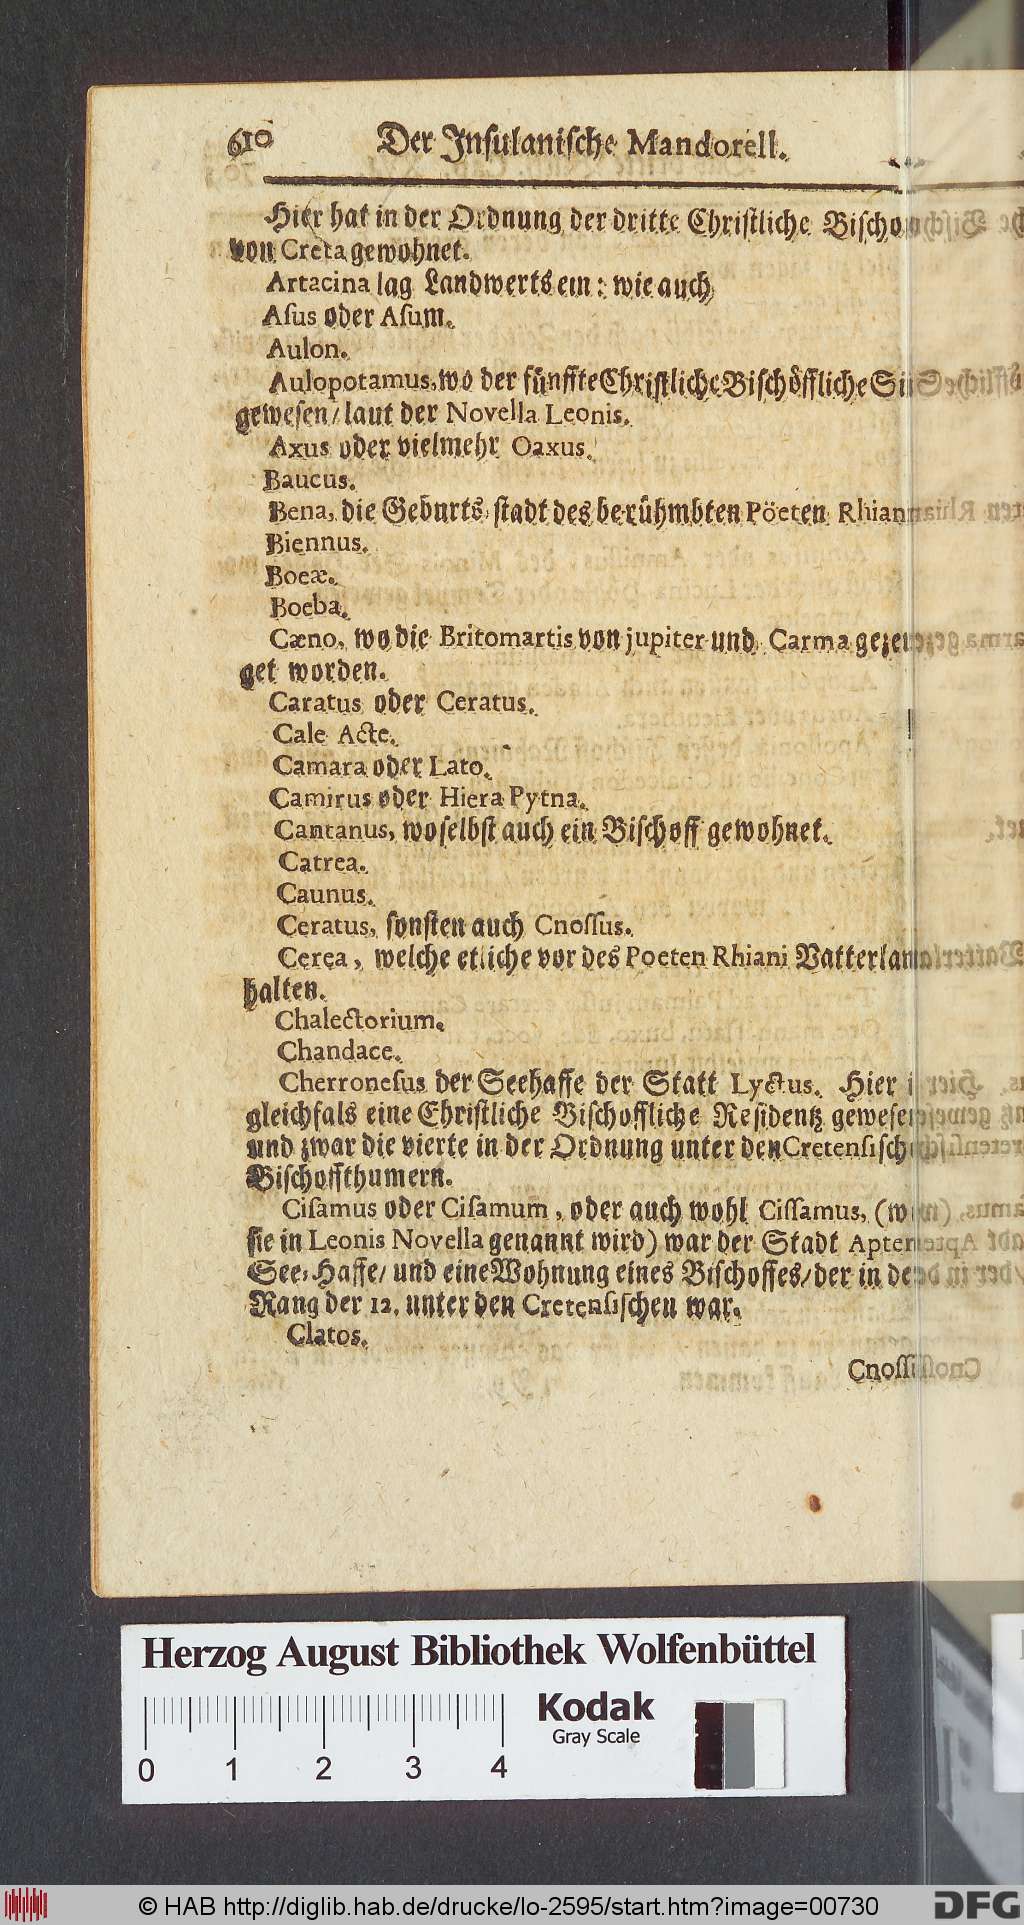 610 Der Inſulaniſche Mandorell.
Hier hat in der Ordnung der dritte Chriſtliche Biſcho
von Creta gewohnet.
Artacina lag Landwerts ein: wie auch
Aſus oder Aſum.
Aulon.
Aulopotamus, wo der fünffte Chriſtliche Biſchöffliche Si
geweſen/ laut der Novella Leonis.
Axus oder vielmehr Oaxus.
Baucus.
Bena, die Geburts-ſtadt des berühmbten Pöeten Rhian
Biennus.
Boeæ.
Boeba.
Cæno, wo die Britomartis von jupiter und Carma gezeu
get worden.
Caratus oder Ceratus.
Cale Acte.
Camara oder Lato.
Camirus oder Hiera Pytna.
Cantanus, woſelbſt auch ein Biſchoff gewohnet.
Catrea.
Caunus.
Ceratus, ſonſten auch Cnoſſus.
Cerea, welche etliche vor des Poeten Rhiani Vatterlan
halten.
Chalectorium.
Chandace.
Cherroneſus der Seehaffe der Statt Lyctus. Hier i
gleichfals eine Chriſtliche Biſchoffliche Reſidentz geweſe
und zwar die vierte in der Ordnung unter den Cretenſiſch
Biſchoffthumern.
Ciſamus oder Ciſamum, oder auch wohl Ciſſamus, (w
ſie in Leonis Novella genannt wird) war der Stadt Apter
See-Haffe/ und eine Wohnung eines Biſchoffes/ der in de
Rang der 12. unter den Cretenſiſchen war.
Clatos.
Cnoſſ
Herzog August Bibliothek Wolfenbüttel
Kodak
Gray Scale
0 1 2 3 4
© HAB http://diglib.hab.de/drucke/lo-2595/start.htm?image=00730
DFG